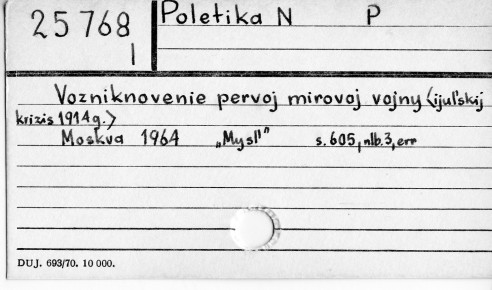 25 768
I
Poletika N P
Vozniknovenie pervoj mirovoj vojny <ijul'skij
krizis 1914g.>
Moskva 1964 „Mysl'" s. 605, nlb. 3, err
DUJ. 693/70. 10 000.